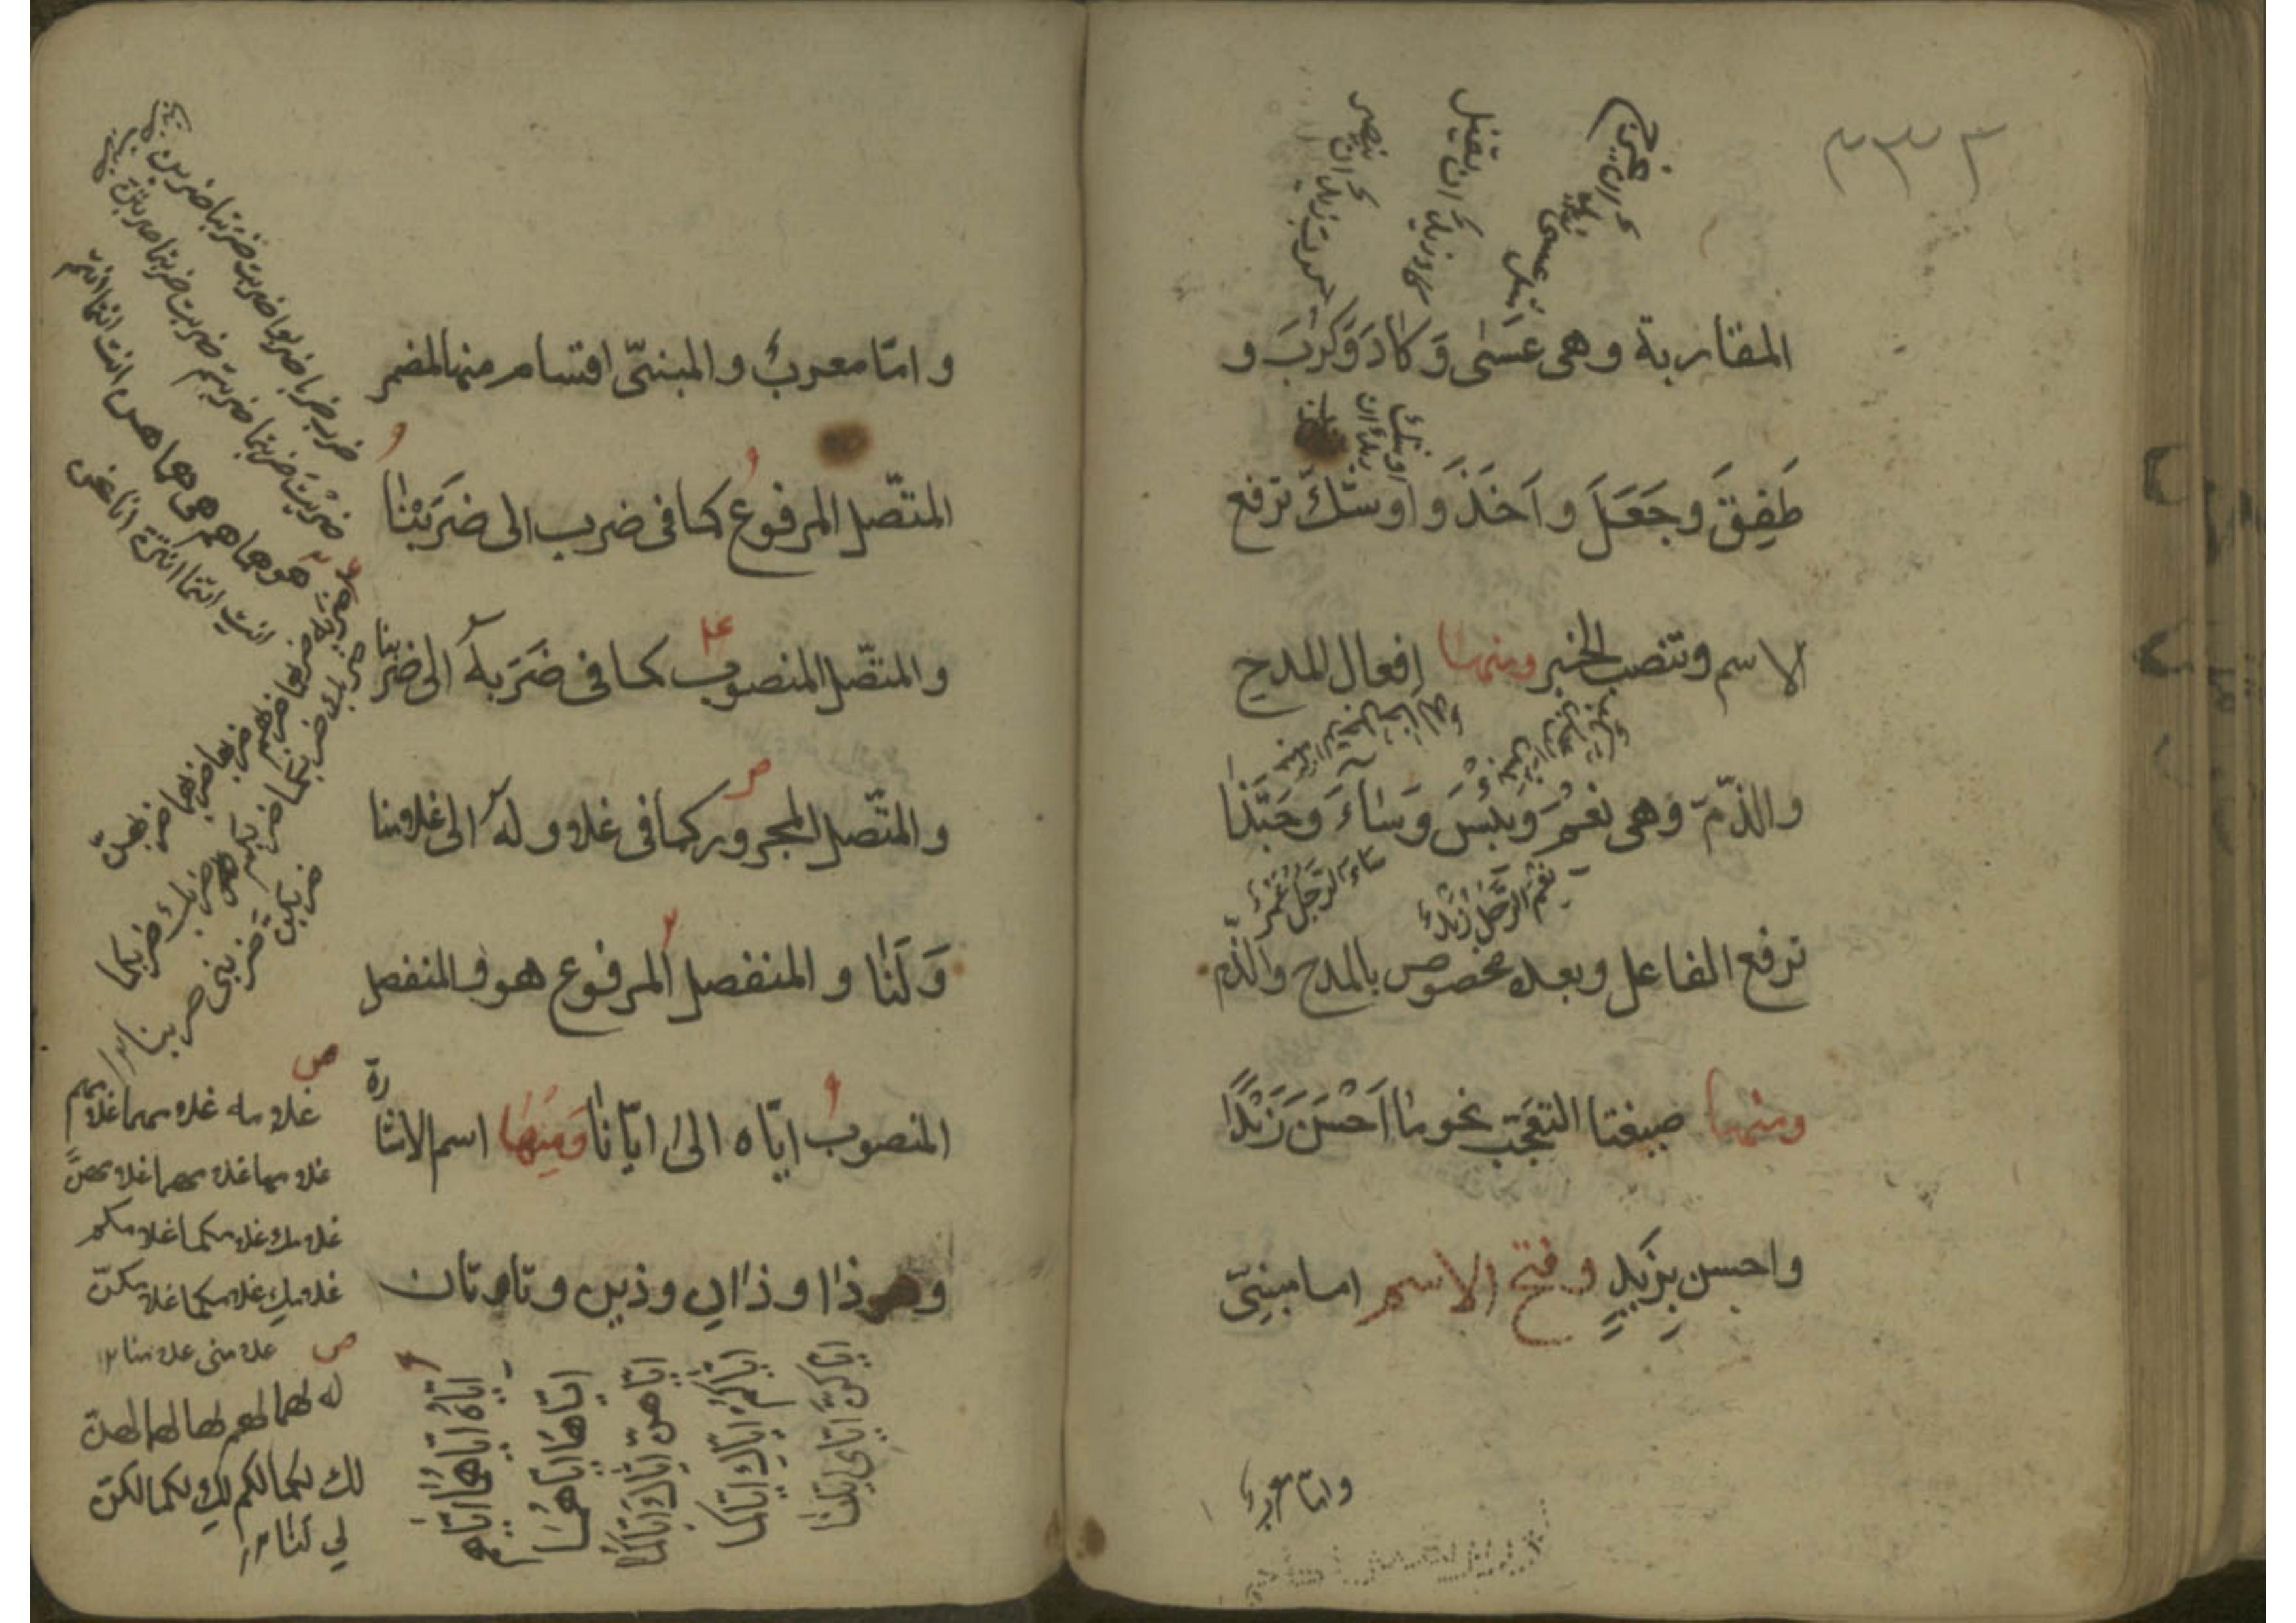 ٣٣٢
عسى زيد ان يخرج
كاد زيد ان
كرب زيد ان
المقاربة وهى عَسٰى وَكادَ وَكَرَبَ و
اوشك زيد ان
طَفِقَ وجَعَلَ واَخَذَ واوشك ترفع
الاسم وتنصب الخبر ومنها افعال المدح
والذّم وهى نِعْمَ وَبِئْسَ وَسَآءَ وحَبَّذا
نِعْمَ الرَّجُلُ زَيْدٌ
سَاءَ الرَّجُلُ عَمْرٌو
ترفع الفاعل وبعده مخصوص بالمدح والذّم
ومنها صيغتا التعجّب نحو ما اَحْسَنَ زَيْدًا
واحسن بِزَيْدٍ وفتح الاسم اما مبنىّ
وامّا معربٌ
وامّا معربٌ والمبنىّ اقسام منها المضمر
المتّصل المرفوع كما فى ضرب الى ضَرَبْنا
والمتّصل المنصوب كما فى ضَرَبَهُ الى ضربنا
والمتّصل المجرور كما فى غلامه وله الى غلامنا
وَلَنا والمنفصل المرفوع هو والمنفصل
المنصوب ايّاه الى ايّانا وَمِنْها اسم الاشارة
وهو ذا وذان وذين وتا وتان
ضرب ضربا ضربوا ضربت ضربتا ضربن
ضربتَ ضربتما ضربتم ضربتِ ضربتما ضربتنّ
هو هما هم هى هما هن انت انتما انتم
انتِ انتما انتنّ انا نحن
ضربه ضربهما ضربهم ضربها ضربهما ضربهنّ
ضربك ضربكما ضربكم ضربكِ ضربكما
ضربكنّ ضربنى ضربنا ١٢
غلامه غلامهما غلامهم
غلامها غلامهما غلامهنّ
غلامك غلامكما غلامكم
غلامكِ غلامكما غلامكنّ
غلامى غلامنا ١٢
له لهما لهم لها لهما لهنّ
لك لكما لكم لكِ لكما لكنّ
لى لنا ١٢
ايّاه ايّاهما ايّاهم
ايّاها ايّاهما
ايّاهنّ ايّاك ايّاكما
ايّاكم ايّاكِ ايّاكما
ايّاكنّ ايّاى ايّانا